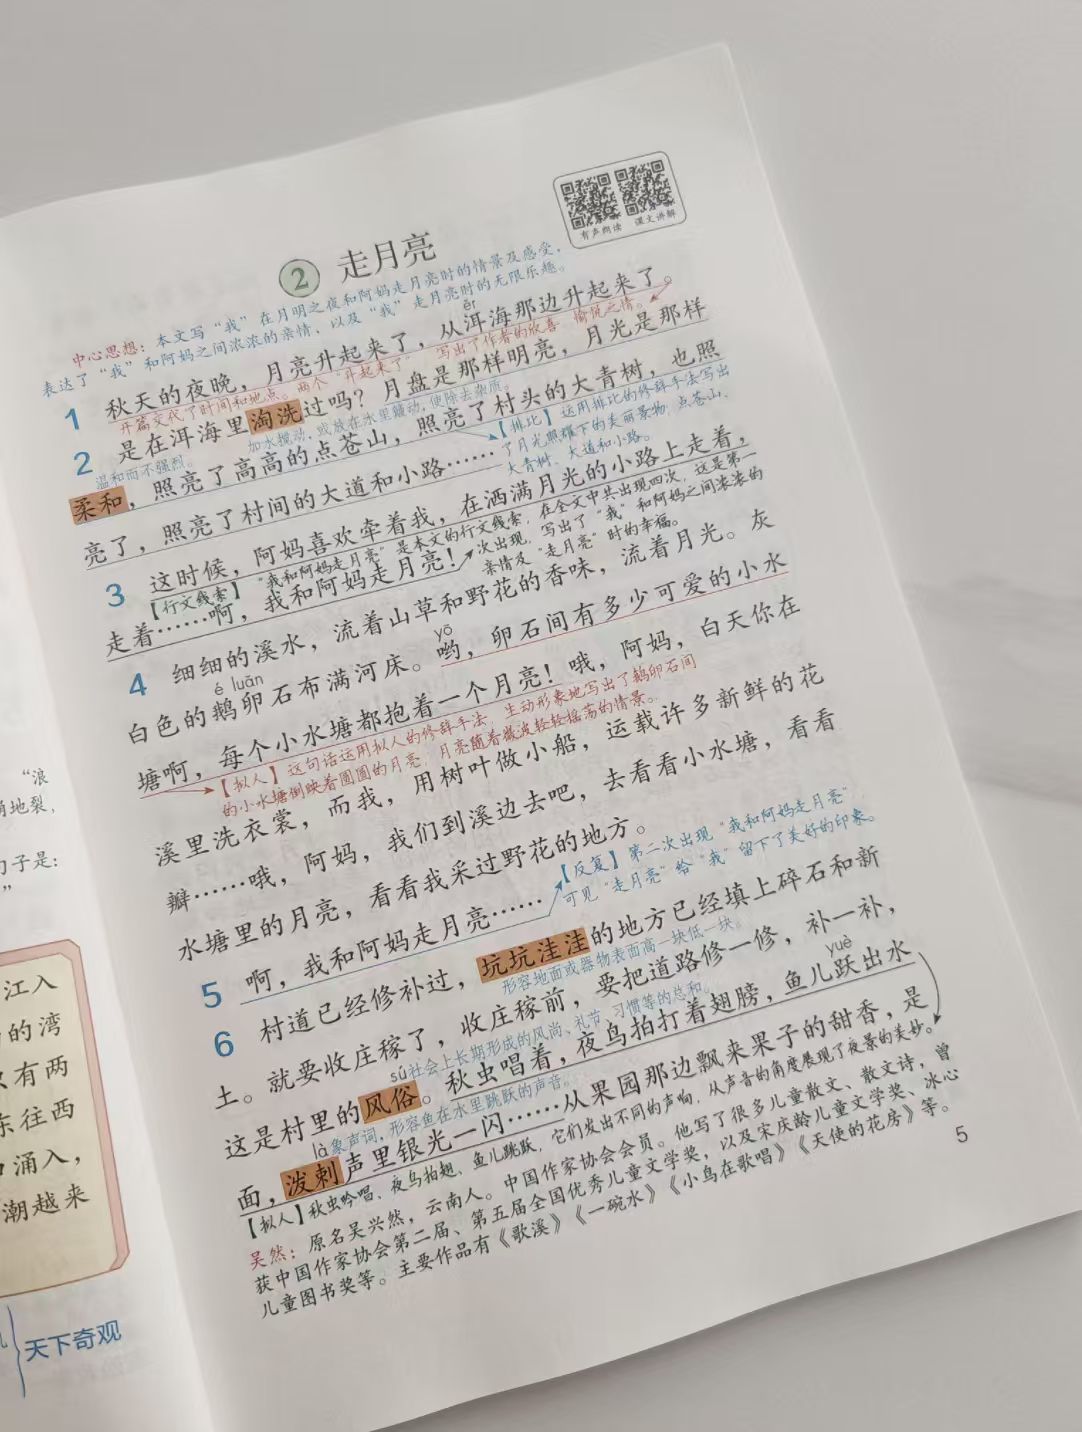 有声朗读 课文讲解
2 走月亮
中心思想：本文写“我”在月明之夜和阿妈走月亮时的情景及感受，
表达了“我”和阿妈之间浓浓的亲情，以及“我”走月亮时的无限乐趣。
ěr
1 秋天的夜晚，月亮升起来了，从洱海那边升起来了。
开篇交代了时间和地点。两个“升起来了”，写出了作者的欣喜、愉悦之情。
2 是在洱海里淘洗过吗？月盘是那样明亮，月光是那样
温和而不强烈。
加水搅动，或放在水里颤动，使除去杂质。
柔和，照亮了高高的点苍山，照亮了村头的大青树，也照
【排比】运用排比的修辞手法写出
了月光照耀下的美丽景物：点苍山、
大青树、大道和小路。
亮了，照亮了村间的大道和小路……
3 这时候，阿妈喜欢牵着我，在洒满月光的小路上走着，
【行文线索】“我和阿妈走月亮”是本文的行文线索，在全文中共出现四次，这是第一
次出现，写出了“我”和阿妈之间浓浓的
亲情及“走月亮”时的幸福。
走着……啊，我和阿妈走月亮！
4 细细的溪水，流着山草和野花的香味，流着月光。灰
é luǎn
yō
白色的鹅卵石布满河床。哟，卵石间有多少可爱的小水
塘啊，每个小水塘都抱着一个月亮！哦，阿妈，白天你在
【拟人】这句话运用拟人的修辞手法，生动形象地写出了鹅卵石间
的小水塘倒映着圆圆的月亮，月亮随着微波轻轻摇荡的情景。
溪里洗衣裳，而我，用树叶做小船，运载许多新鲜的花
瓣……哦，阿妈，我们到溪边去吧，去看看小水塘，看看
水塘里的月亮，看看我采过野花的地方。
【反复】第二次出现“我和阿妈走月亮”，
可见“走月亮”给“我”留下了美好的印象。
5 啊，我和阿妈走月亮……
6 村道已经修补过，坑坑洼洼的地方已经填上碎石和新
形容地面或器物表面高一块低一块。
土。就要收庄稼了，收庄稼前，要把道路修一修，补一补，
sú
社会上长期形成的风尚、礼节、习惯等的总和。
yuè
这是村里的风俗。秋虫唱着，夜鸟拍打着翅膀，鱼儿跃出水
là
象声词，形容鱼在水里跳跃的声音。
面，泼剌声里银光一闪……从果园那边飘来果子的甜香，是
【拟人】秋虫吟唱、夜鸟拍翅、鱼儿跳跃，它们发出不同的声响，从声音的角度展现了夜景的美妙。
吴然：原名吴兴然，云南人。中国作家协会会员。他写了很多儿童散文、散文诗，曾
获中国作家协会第二届、第五届全国优秀儿童文学奖，以及宋庆龄儿童文学奖、冰心
儿童图书奖等。主要作品有《歌溪》《一碗水》《小鸟在歌唱》《天使的花房》等。
5
“浪
地裂，
子是：
”
江入
的湾
有两
东往西
涌入，
潮越来
天下奇观